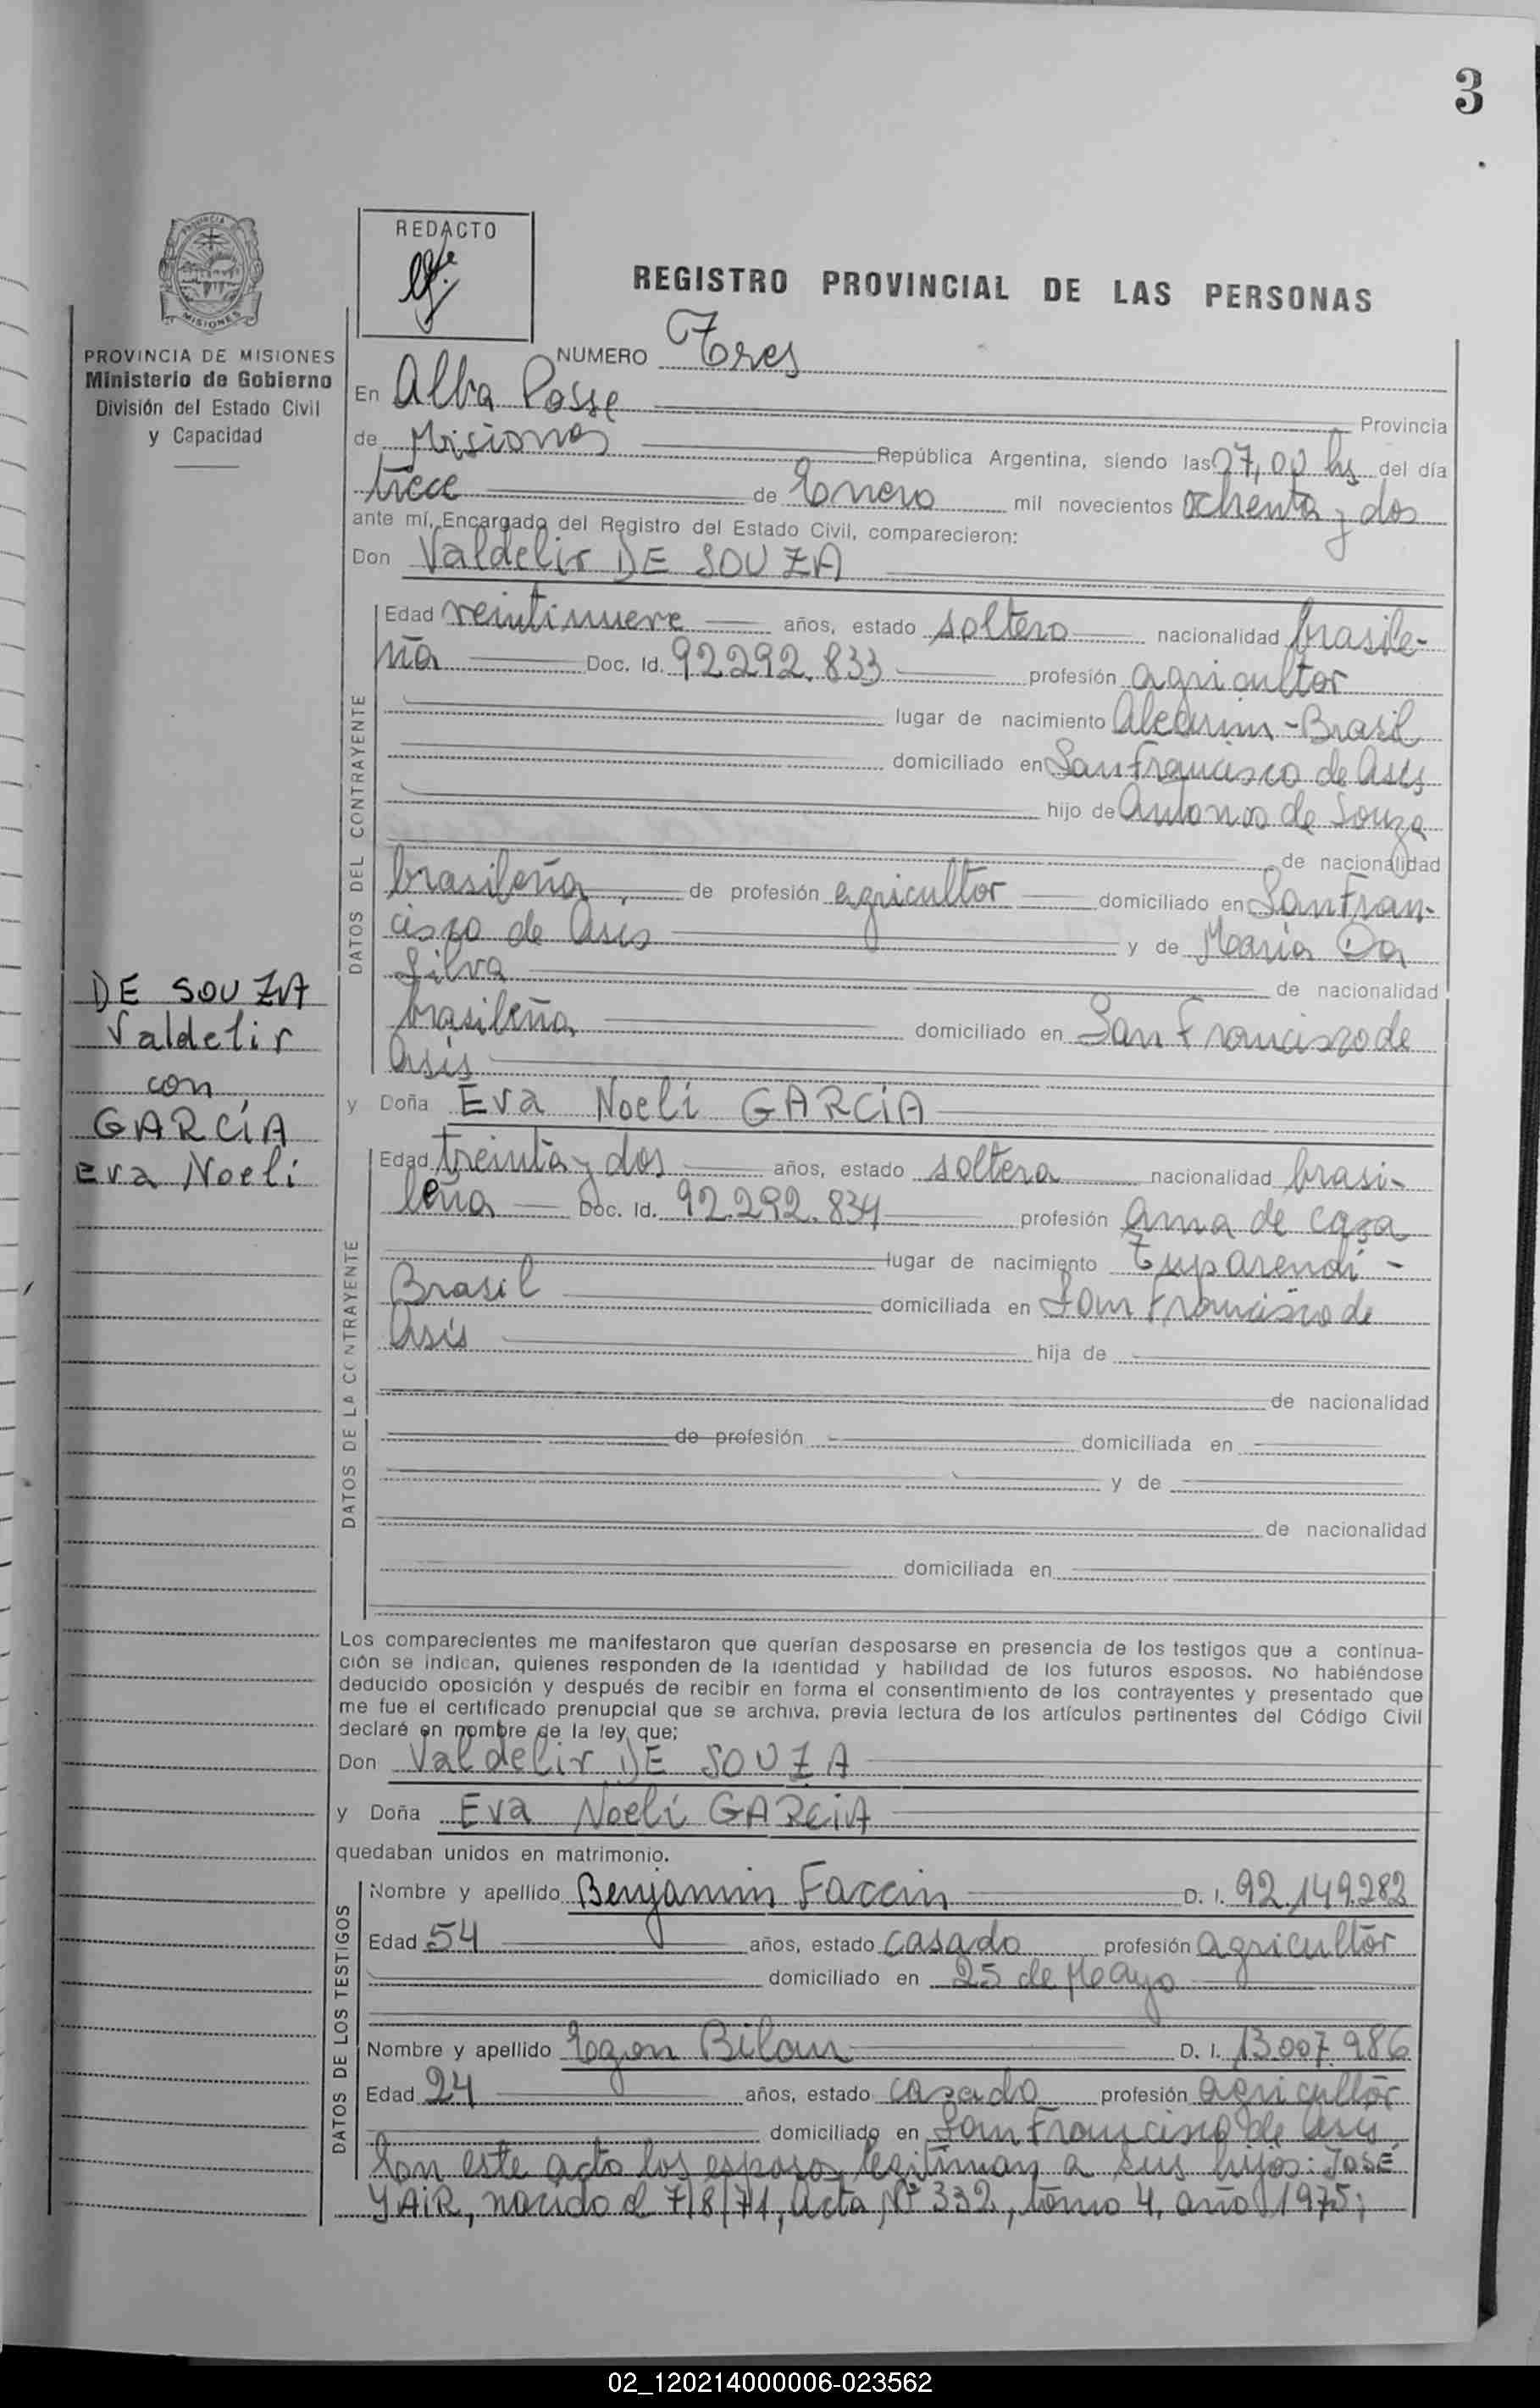 3
REDACTO
REGISTRO PROVINCIAL DE LAS PERSONAS
PROVINCIA
MISIONES
PROVINCIA DE MISIONES
Ministerio de Gobierno
División del Estado Civil
y Capacidad
NUMERO Tres
En Alba Posse Provincia
de Misiones República Argentina, siendo las 07,00 hs del día
trece de Enero mil novecientos ochenta y dos
ante mí, Encargado del Registro del Estado Civil, comparecieron:
Don Valdelir DE SOUZA
DATOS DEL CONTRAYENTE
Edad veintinueve años, estado soltero nacionalidad brasile-
ña Doc. Id. 92292.833 profesión agricultor
lugar de nacimiento Alecrim - Brasil
domiciliado en San Francisco de Asís
hijo de Antonio de Souza
de nacionalidad
brasileña, de profesión agricultor domiciliado en San Fran-
cisco de Asís y de María Da
Silva de nacionalidad
brasileña domiciliado en San Francisco de
Asís
DE SOUZA
Valdelir
con
GARCÍA
Eva Noelí
y Doña Eva Noelí GARCÍA
DATOS DE LA CONTRAYENTE
Edad treinta y dos años, estado soltera nacionalidad brasi-
leña Doc. Id. 92.292.834 profesión ama de casa
lugar de nacimiento Tuparendí -
Brasil domiciliada en San Francisco de
Asís hija de
de nacionalidad
de profesión domiciliada en
y de
de nacionalidad
domiciliada en
Los comparecientes me manifestaron que querían desposarse en presencia de los testigos que a continua-
ción se indican, quienes responden de la identidad y habilidad de los futuros esposos. No habiéndose
deducido oposición y después de recibir en forma el consentimiento de los contrayentes y presentado que
me fue el certificado prenupcial que se archiva, previa lectura de los artículos pertinentes del Código Civil
declaré en nombre de la ley que;
Don Valdelir DE SOUZA
y Doña Eva Noelí GARCÍA
quedaban unidos en matrimonio.
DATOS DE LOS TESTIGOS
Nombre y apellido Benjamin Faccin D. I. 92.149.282
Edad 54 años, estado casado profesión agricultor
domiciliado en 25 de Mayo
Nombre y apellido Egon Bilau D. I. 13.007.986
Edad 24 años, estado casado profesión agricultor
domiciliado en San Francisco de Asís
Con este acto los esposos legitiman a sus hijos: JOSÉ
YAIR, nacido el 7/8/71, Acta Nº 332, tomo 4, año 1975;
02_120214000006-023562